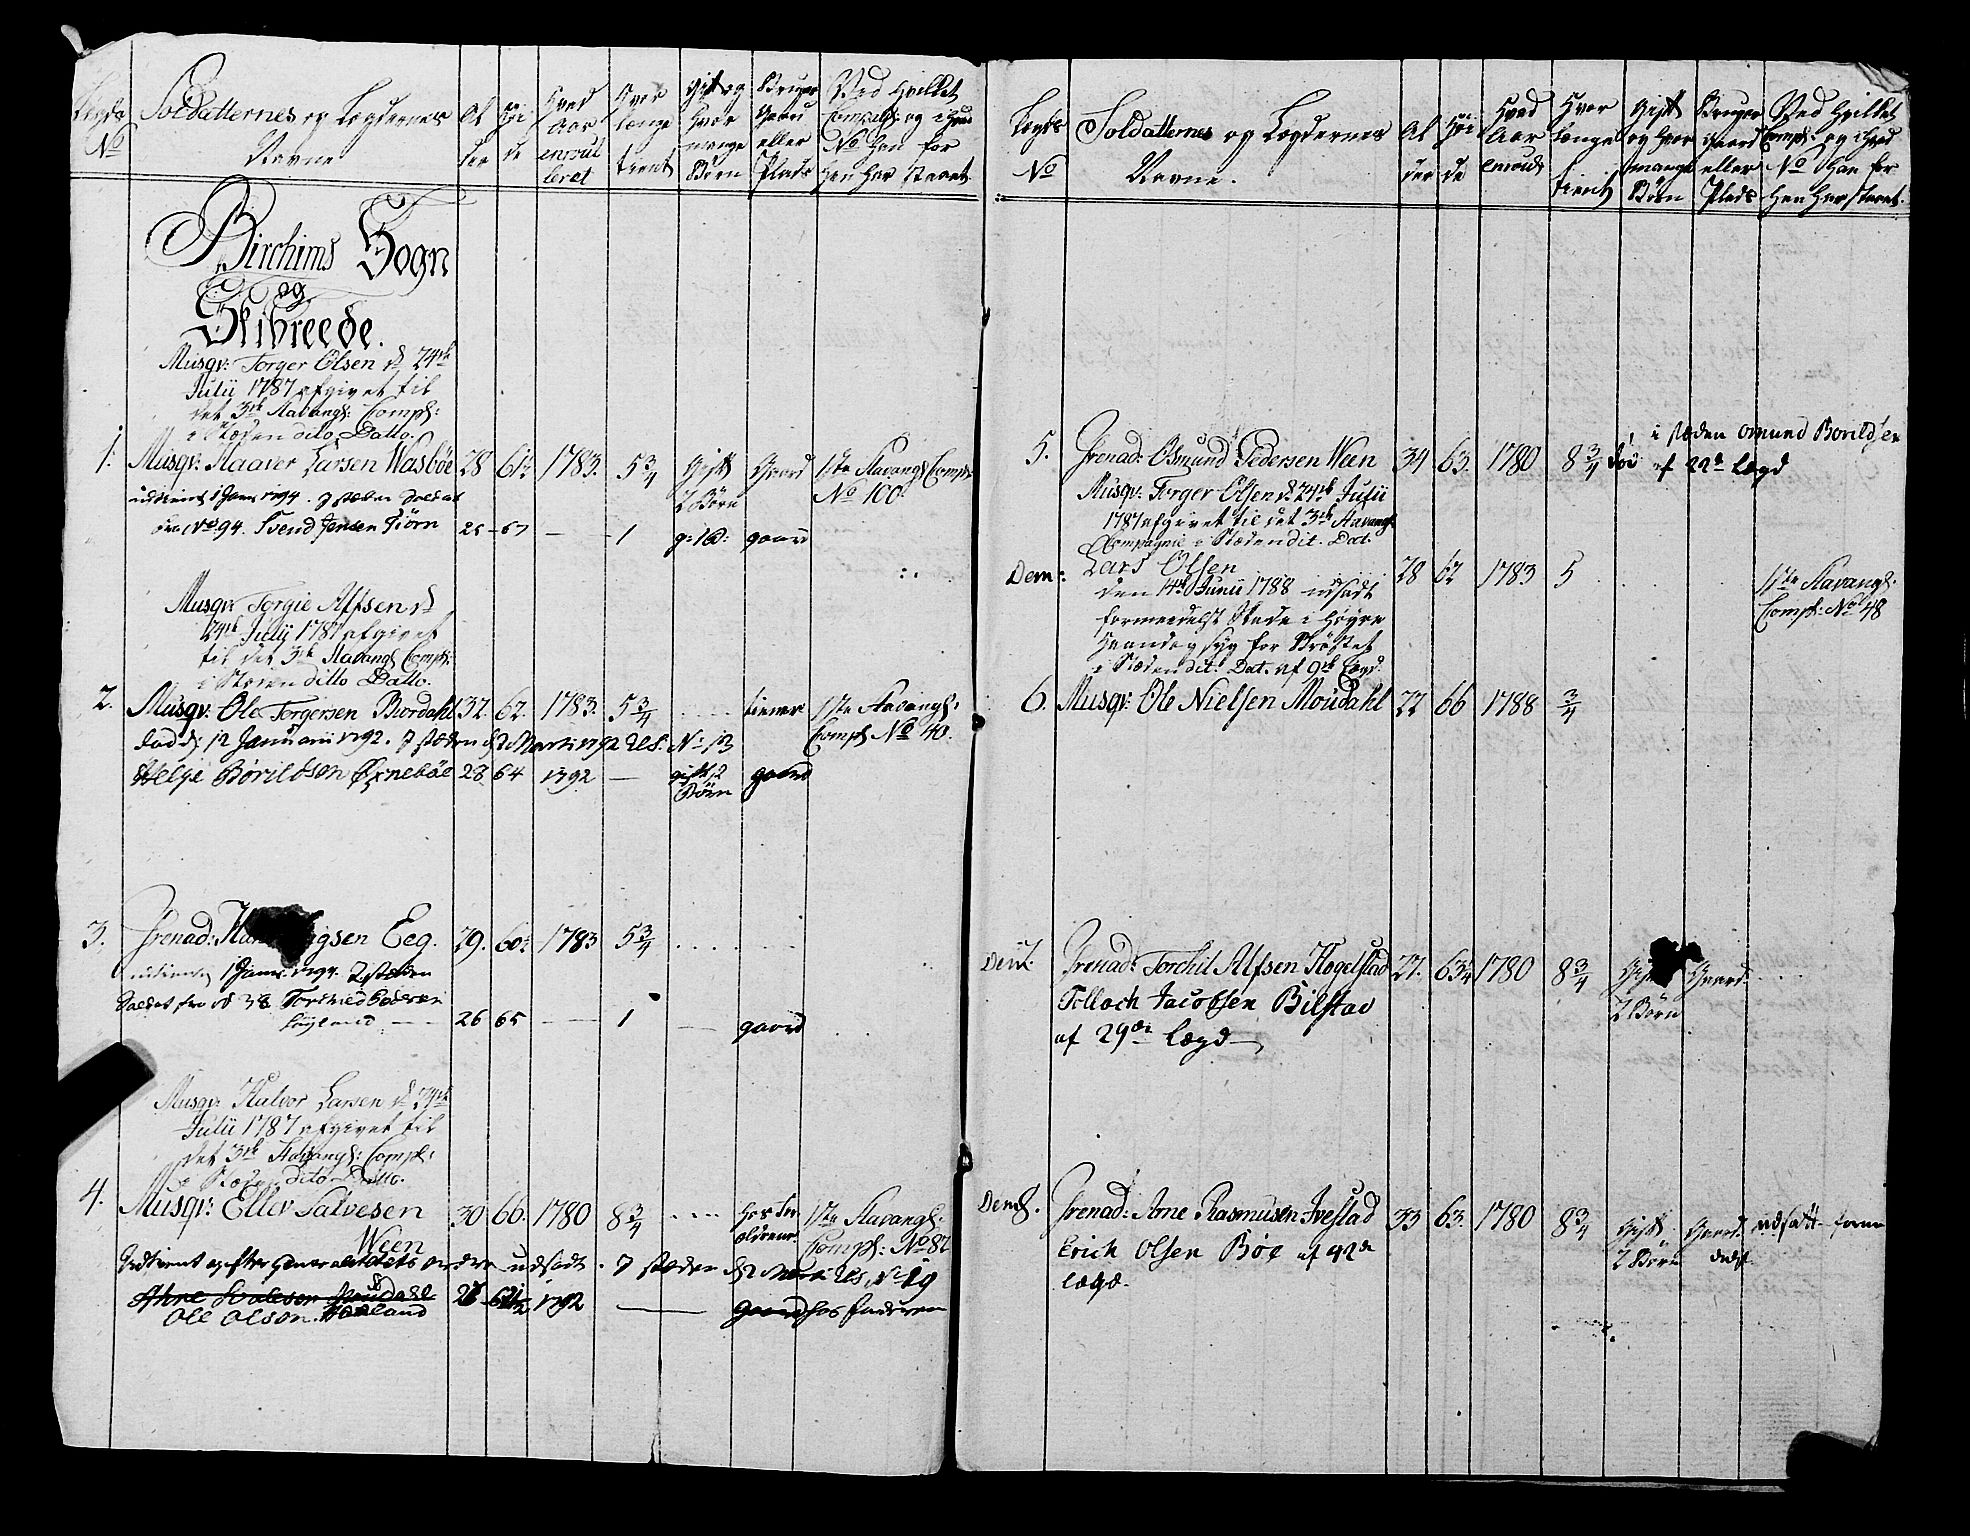 Lægds No
Soldatternes og Lægdernes Navne
Al der
Høi de
Hvad Aar enroul leret
Hvor længe tient
Gift og Hvor mange Børn
Bruger Gaard eller Plads
Ved Hvilket Comp: og i Hvad No Han før Hen Har staaet
Birchims Sogn
og
Skibreede.
Musqv: Torger Olsen d 24de
Julii 1787 afgivet til
det 3de Stavangs: Comp:
i Stæden dito Datto.
1. Musqv: Haaver Larsen Wasbøe 28 61½ 1783. 5¾ Gift Gaard 1ste Stavangs Comp:
2 Børn No 100.
udtient 1 Janr 1794. I stæden Soldat
fra No 94. Svend Jensen Tiørn 25 67 — 1 g: 1 B: gaard
Musqv: Torgie Alfsen d
24de Julij 1787 afgivet
til det 3de Stavangs Comp:
i Stæden ditto Datto.
2. Musqv: Ole Torgersen Biordahl 32. 62. 1783. 5¾ .... tiener 1ste Stavangs:
Comp: No 40.
død d: 12 Januarii 1792. I stæden d 2 Martii 1792 No 13
Helje Børildsen Øxnebøe 28 64 1792 — gift 2 Børn gaard
3. Grenad: gsen Eeg. 29. 60½ 1783 5¾ .... ...
udtient 1 Janr 1794. I stæden
Soldat fra No 38 Tormod Pedersen
Løyland — 26 65 — 1 — gaard
Musqv: Halvor Larsen d 24de
Julii 1787 afgivet til
det 3de Stavangs: Comp:
i Stæden Dito Datto.
4. Musqv: Ellev Salvesen 30 66. 1780 8¾ .... hos For ældrene 1ste Stavangs:
Ween Comp: No 82
Udtient og efter Generalitetets Ordre udsadt. I stæden d 2 Martii No 29
Ahne Svalesen Moudahl 28 62½ 1792 — gaard hos Faderen
Ole Olson. Houland
Lægds No
Soldatternes og Lægdernes Navne.
Al der
Høi de
Hvad Aar enroul
Hvor længe tient
Gift og Hvor mange Børn
Bruger Gaard eller Plads
Ved Hvilket Comp: og i Hvad No Han før Hen Har staaet.
5. Grenad: Osmund Pedersen Ween 34 63. 1780 8¾ død i stæden omund Borildsen
af 22d Lægd
Musqv: Torger Olsen d. 24de Julii
1787 afgivet til det 3de Stavangs
Compagnie i Stæden dit. Dat.
Dem: Lars Olsen 28 62 1783 5 1ste Stavangs:
Comp: No 48
den 14de Junii 1788 udsadt
formedelst Skade i Høyre
Haand og syg for Brøstet
i Stæden dit: Dat. af 9de Lægd.
6. Musqv: Ole Nielsen Moudahl 22 66 1788 ¾
Dem: Grenad: Torchil Alfsen Hogelstad 27. 63¼ 1780 8¾ Gift Gaard.
2 Børn
Tollach Jacobsen Bilstad
af 29de Lægd
Dem 8. Grenad: Arne Rasmusen Ivestad 33 63. 1780 8¾ Gift Gaard. udsatt
2 Børn
Erich Olsen Bøe af 42de
Lægd.